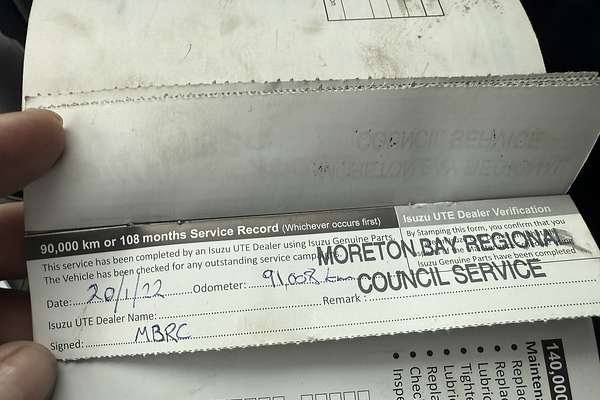 90,000 km or 108 months Service Record (Whichever occurs first)
Isuzu UTE Dealer Verification
This service has been completed by an Isuzu UTE Dealer using Isuzu Genuine Parts
The Vehicle has been checked for any outstanding service
By Stamping this form, you confirm that you
Isuzu Genuine Parts have been completed
MORETON BAY REGIONAL
COUNCIL SERVICE
Date: 20/1/22 Odometer: 91,008 km
Remark :
Isuzu UTE Dealer Name:
Signed: MBRC
140,000
Maintenance
• Replace
• Replace
• Lubric
• Tighte
• Lubri
• Repla
• Chec
• Inspe